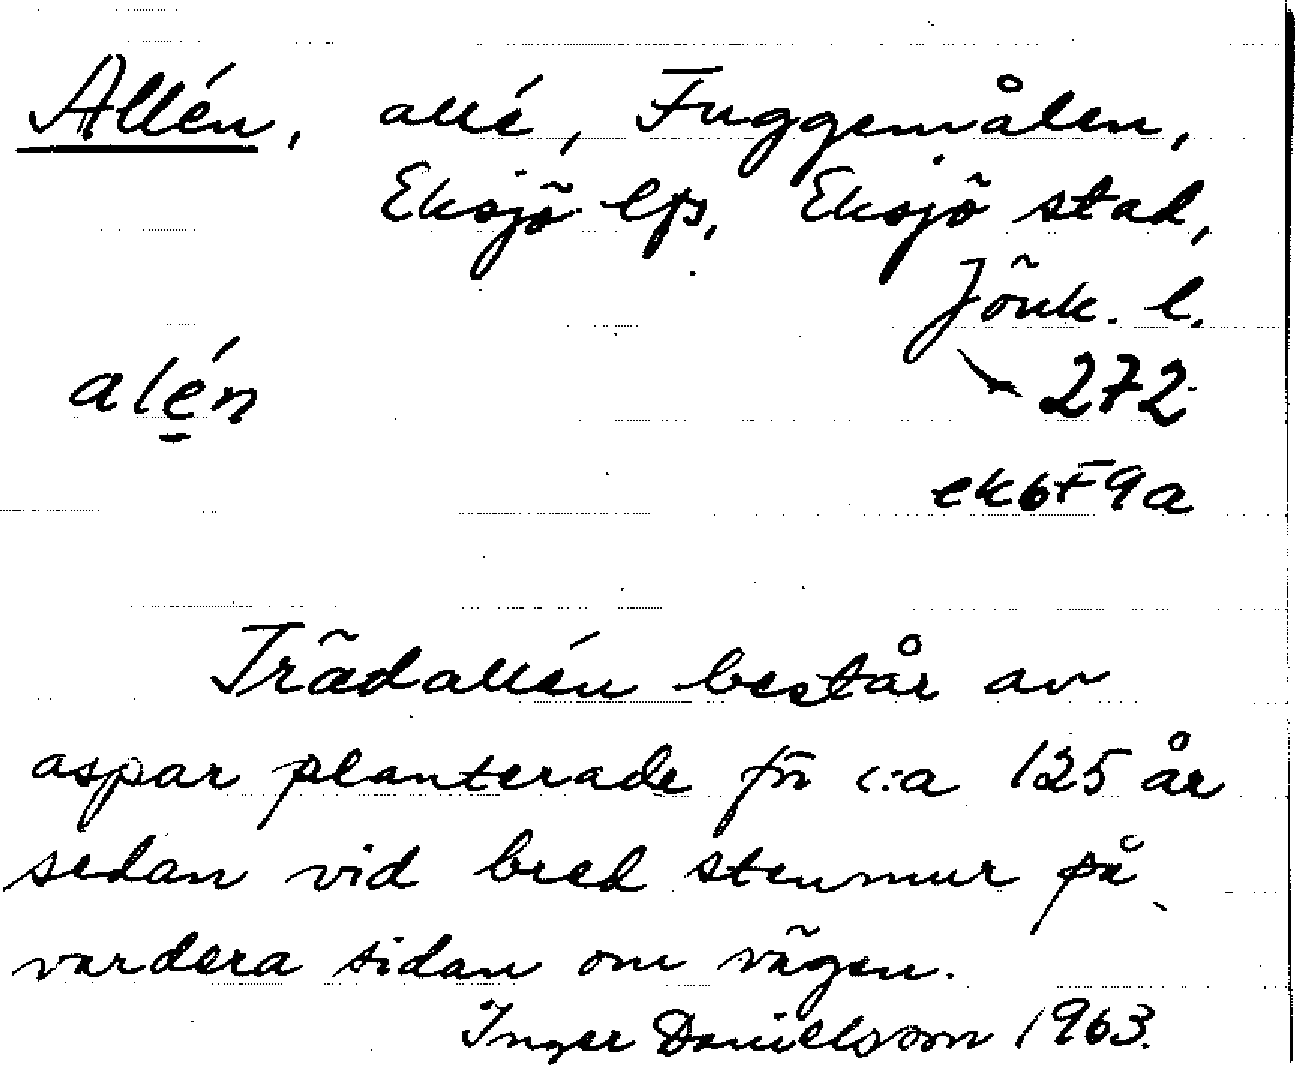 Allén, allé, Fuggemålen,
Eksjö lfs, Eksjö stad,
Jönk. l.
alén
272
ek 6F9a
Trädallén består av
aspar planterade för c:a 125 år
sedan vid bred stenmur på
vardera sidan om vägen.
Inger Danielsson 1963.